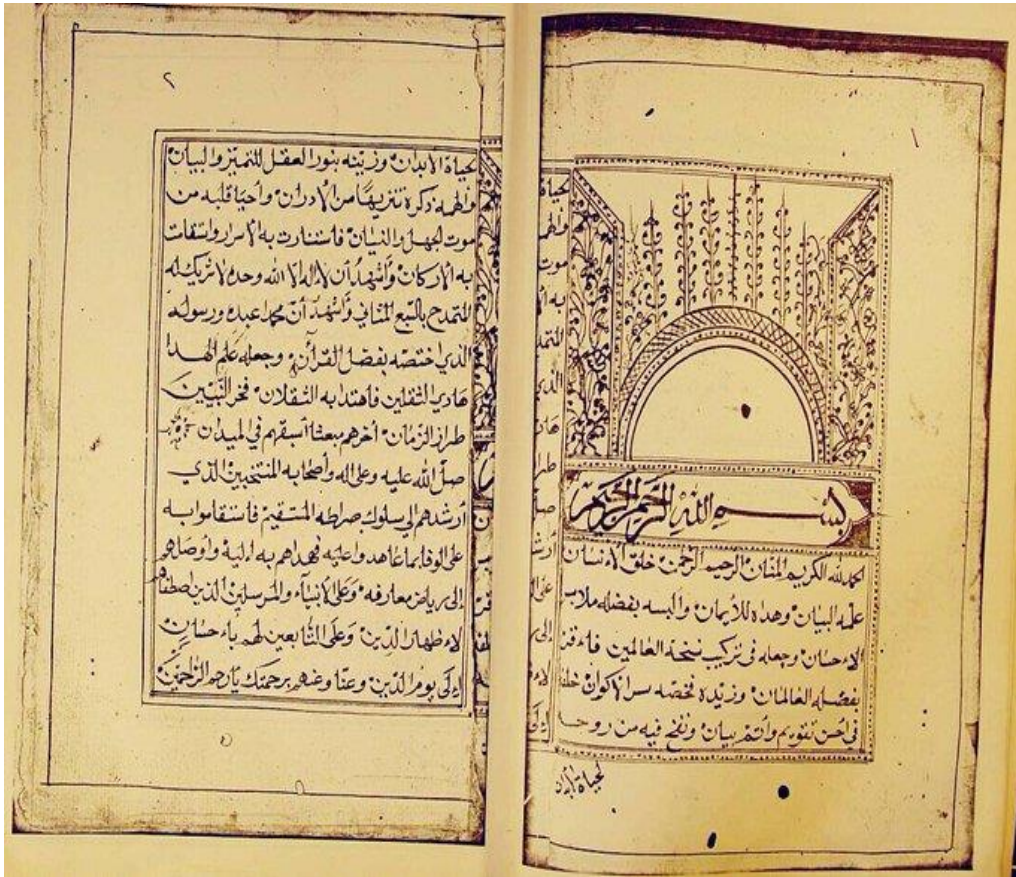 بسم الله الرحمن الرحيم
الحمد لله الكريم المنان الرحيم الرحمن خلق الإنسان
علمه البيان وهداه للأيمان والبسه بفضله ملابس
الإحسان وجعله في تركيب نسخة العالمين
بفضله العالمان وزبدة سر الأكوان خلقه
في أحسن تقويم وأتم بيان ونفخ فيه من روحه
لحياة أبدان
٢
لحياة الأبدان وزينه بنور العقل للتميز والبيان
والهمه ذكره تنزيهًا من الأدران وأحيا قلبه من
موت الجهل والنسيان فاستنارت به الأسرار واستقامت
به الأركان وأشهد أن لا إله إلا الله وحده لا شريك له
المتمدح بالسبع المثاني وأشهد أن محمدا عبده ورسوله
الذي اختصه بفضل القرآن وجعله علم الهدا
هادي الثقلين فاهتدا به الثقلان فخر النبيين
طراز الزمان أخرهم مبعثا أسبقهم في الميدان
صل الله عليه وعلى اله وأصحابه المنتخبين الذي
أرشدهم إلى سلوك صراطه المستقيم فاستقاموا به
على الوفا بما عاهدوا عليه فهداهم به إليه وأوصلهم
إلى رياض معارفه وعلى الأنبيآء والمرسلين الذين اصطفاهم
لإظهار الدين وعلى التابعين لهم بإحسان
إلى يوم الدين وعنا وعنهم برحمتك يا أرحم الراحمين